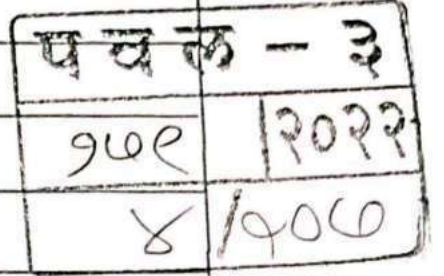 प व ल - ३
१७९ | २०२२
४ / १०७